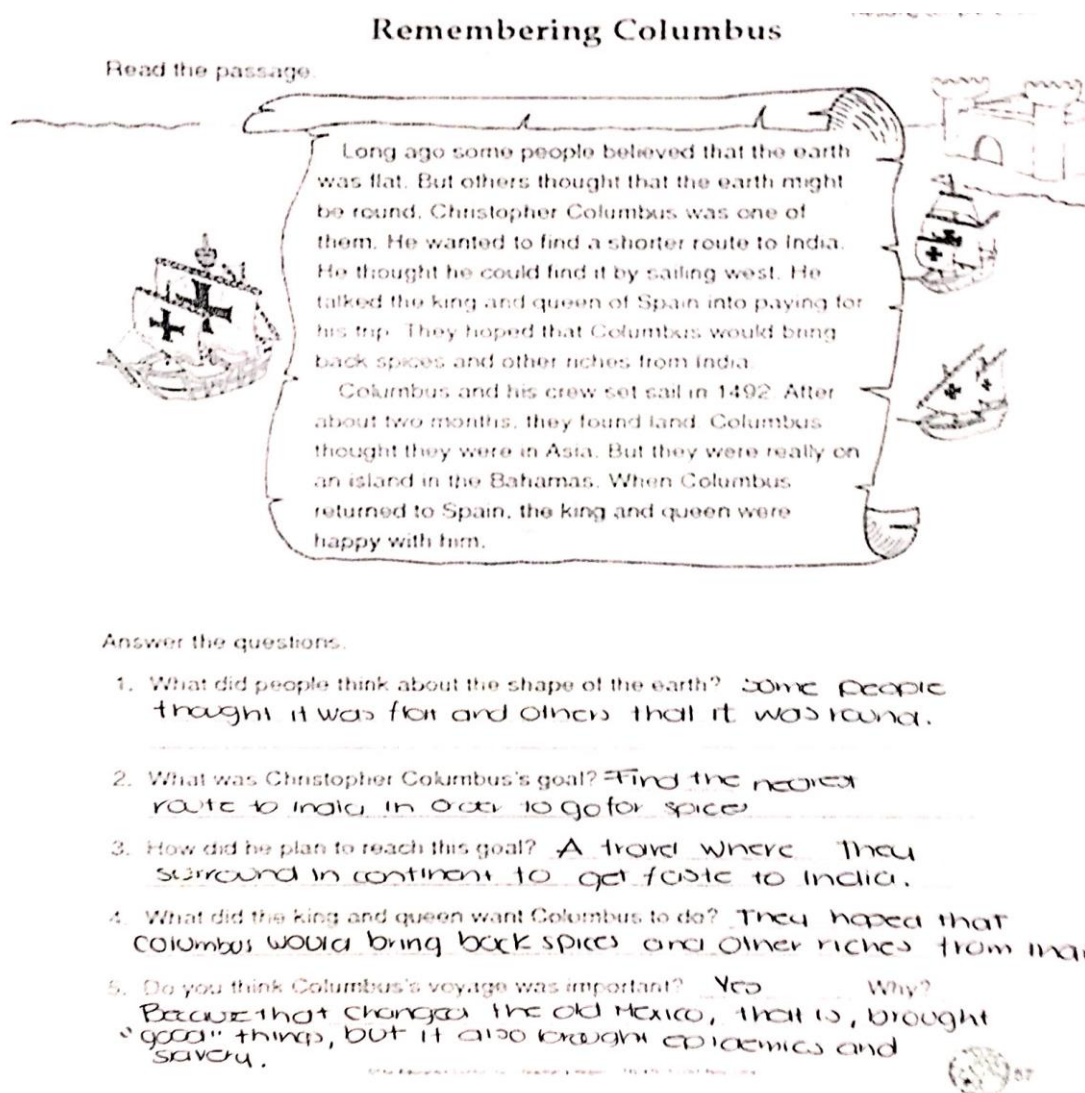 Remembering Columbus
Read the passage.
Long ago some people believed that the earth
was flat. But others thought that the earth might
be round. Christopher Columbus was one of
them. He wanted to find a shorter route to India.
He thought he could find it by sailing west. He
talked the king and queen of Spain into paying for
his trip. They hoped that Columbus would bring
back spices and other riches from India.
Columbus and his crew set sail in 1492. After
about two months, they found land. Columbus
thought they were in Asia. But they were really on
an island in the Bahamas. When Columbus
returned to Spain, the king and queen were
happy with him.
Answer the questions.
1. What did people think about the shape of the earth? Some people
thought it was flat and others that it was round.
2. What was Christopher Columbus's goal? Find the nearest
route to india in order to go for spices
3. How did he plan to reach this goal? A travel where they
surround in continent to get faste to India.
4. What did the king and queen want Columbus to do? They hoped that
Columbus would bring back spices and other riches from
5. Do you think Columbus's voyage was important? Yes Why?
Because that changed the old Mexico, that is, brought
"good" things, but it also brought epidemics and
slavery.
57